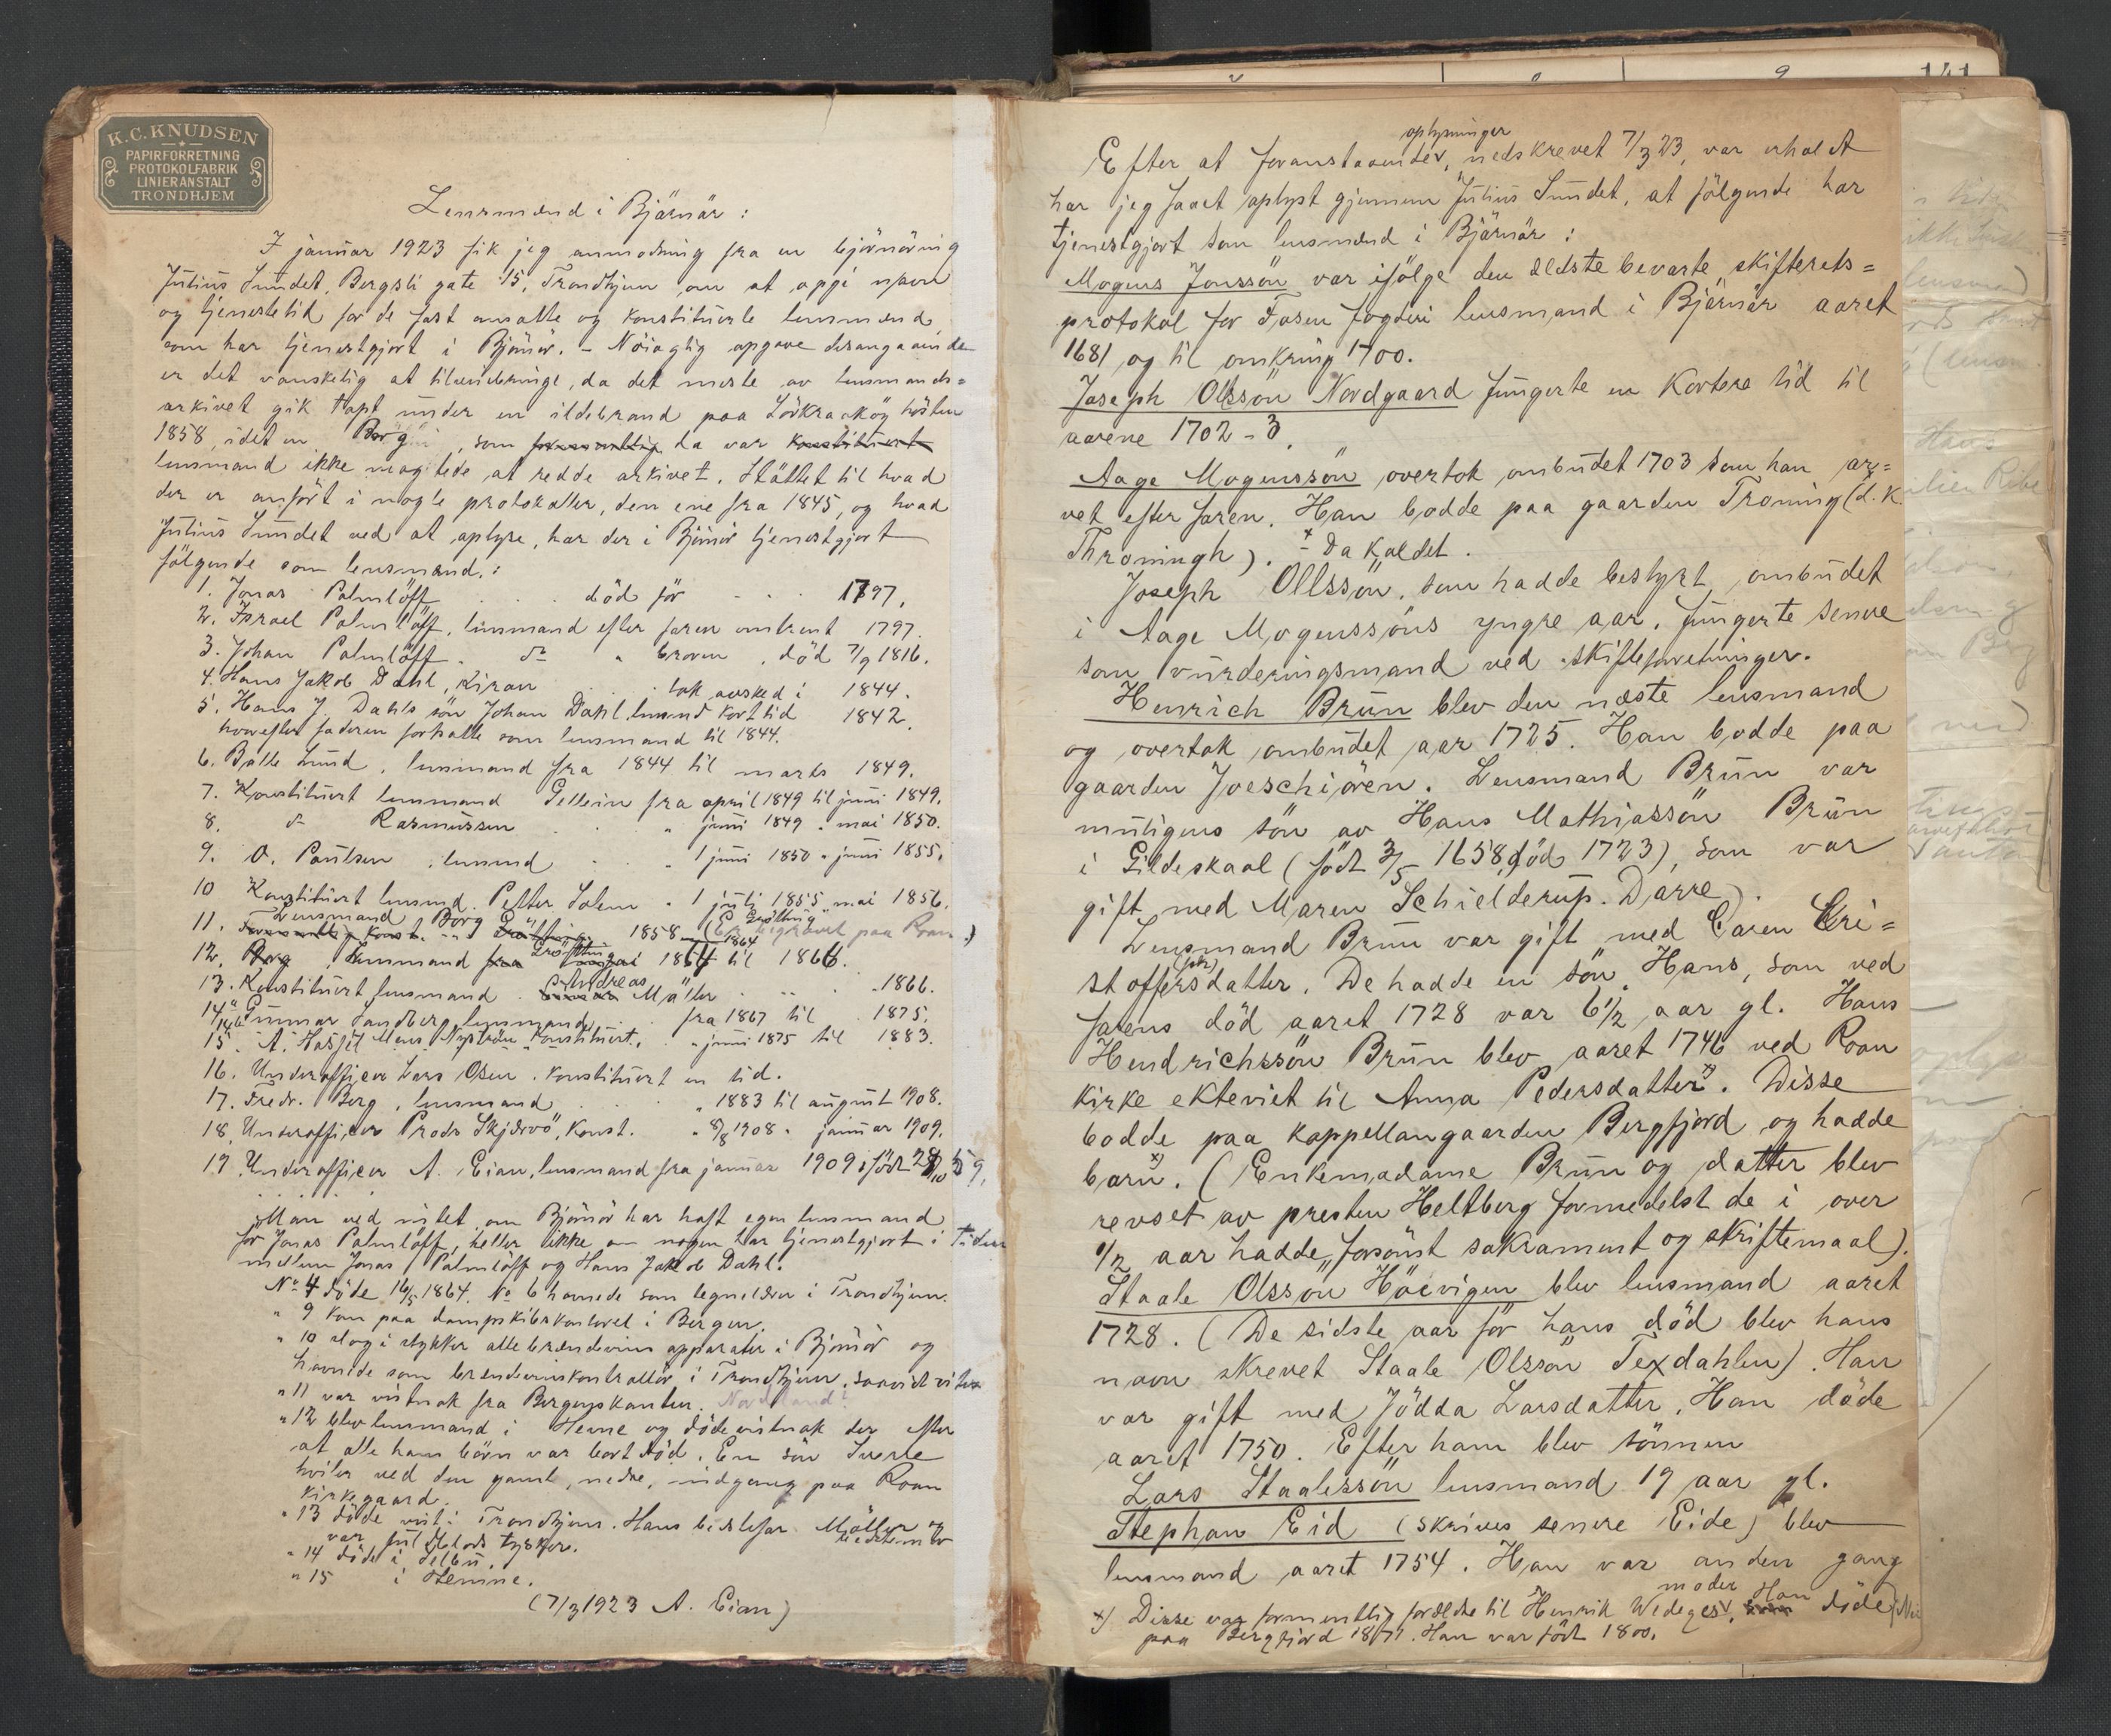 K.C. KNUDSEN
PAPIRFORRETNING
PROTOKOLFABRIK
LINIERANSTALT
TRONDHJEM
Lensmænd i Bjørnør:
I januar 1923 fik jeg anmodning fra en bjørnøring
Julius Sundet, Bergsli gate 15, Trondhjem om at opgi navn
og tjenestetid for de fast ansatte og konstituerte lensmænd
som har tjenestgjort i Bjørnør. – Nøiagtig opgave desangaaende
er det vanskelig at tilveiebringe, da det meste av lensmands=
arkivet gik tapt under en ildebrand paa høsten
1858, idet en Borg, som da var konstituert
lensmand ikke magtede at redde arkivet. Støttet til hvad
der er anført i nogle protokoller, den ene fra 1845, og hvad
Julius Sundet ved at oplyse, har der i Bjørnør tjenestgjort
følgende som lensmænd:
1. Jonas Palmlöff . . . död för . . . 1797.
2. Israel Palmlöff, lensmand efter faren omtrent 1797.
3. Johan Palmlöff . do " broren, död 7/9 1816.
4. Hans Jakob Dahl, Kiran . . . tok avsked i 1844.
5. Hans J. Dahls sön Johan Dahl lensmd kort tid 1842.
hvorefter faderen fortsatte som lensmand til 1844.
6. Balle Lund, lensmand fra 1844 til marts 1849.
7. Konstituert lensmand Gellein fra april 1849 til juni 1849.
8. do Rasmussen . . . " juni 1849 " mai 1850.
9. O. Paulsen, lensmd . . " 1 juni 1850 " juni 1855.
10 Konstituert lensmd. Petter Solem " 1 juli 1855 mai 1856.
11. Lensmand Borg 1858 (Er begravet paa Roan.)
12. Grötting lensmand 1864 til 1866.
13. Konstituert lensmand Andreas Möller . . . 1866.
14 Gunnar Sandberg lensmand . . fra 1867 til 1875.
15. A. Mens Nyström konstituert. " juni 1875 til 1883.
16. Underofficer Lars Osen. Konstituert en tid.
17. Fredr. Berg, lensmand . . . " 1883 til august 1908.
18. Underofficer Peder Skjærvö, Konst. " 8/8 1908 " januar 1909.
19. Underofficer A. Eian, lensmand fra januar 1909 født
Man ved intet om Bjørnør har haft egen lensmand
før Jonas Palmlöff, heller ikke om nogen har tjenestgjort i tiden
mellem Jonas Palmlöff og Hans Jakob Dahl.
No 4 døde 16/5 1864. No 6 havnede som tegnelærer i Trondhjem.
" 9 kom paa dampskibskontoret i Bergen.
" 10 slog i stykker alle brændevins apparater i Bjørnør og
havnede som brændevinskontrollør i Trondhjem, saavidt vites
" 11 var vistnok fra Bergenskanten. Nordland?
" 12 blev lensmand i Hevne og døde vistnok der efter
at alle hans børn var bortdød. En søn Sverle
hviler ved den gamle, nedre, indgang paa Roan
kirkegaard.
" 13 døde vist i Trondhjem. Hans bedstefar Møller og bedstemor
var fulblods tyskere.
" 14 døde i Selbu.
" 15 i Hemne.
(7/3 1923 A. Eian)
141
Efter at foranstaaende oplysninger, nedskrevet 7/3 23, var erholdt
har jeg faaet oplyst gjennem Julius Sundet, at følgende har
tjenestgjort som lensmænd i Bjørnør:
Mogens Jonssön var ifølge den ældste bevarte skifterets=
protokol for Fosen fogderi lensmand i Bjørnør aaret
1681 og til omkring 1700.
Joseph Olssön Nordgaard fungerte en kortere tid til
aarene 1702-3.
Aage Mogenssön overtok ombudet 1703 som han ar=
vet efter faren. Han bodde paa gaarden Troning (d. k.
Throningh). x – da kaldet.
Joseph Ollssön, som hadde bestyrt ombudet
i Aage Mogenssöns yngre aar, fungerte senere
som vurderingsmand ved skifteforretninger.
Henrich Brun blev den næste lensmand
og overtok ombudet aar 1725. Han bodde paa
gaarden Joeschiören. Lensmand Brun var
muligens sön av Hans Mathiassön Brun
i Gildeskaal (født 3/5 1658, död 1723), som var
gift med Maren Schielderup. Darre).
Lensmand Brun var gift med Caren Cri=
stoffersdatter. De hadde en sön, Hans, som ved
farens död aaret 1728 var 6 1/2 aar gl. Hans
Hendrichssön Brun blev aaret 1746 ved Roan
kirke ekteviet til Anna Pedersdatter x). Disse
bodde paa kappellangaarden Bergfjord og hadde
barn x). (Enkemadame Brun og datter blev
revset av presten Heltberg formedelst de i over
1/2 aar hadde „forsömt sakrament og skriftemaal).
Staale Olssön Höevigen blev lensmand aaret
1728. (De sidste aar för hans död blev hans
navn skrevet Staale Olssön Texdahlen). Han
var gift med Jödda Larsdatter. Han döde
aaret 1750. Efter ham blev sönnen
Lars Staalessön lensmand 19 aar gl.
Stephan Eid (skrives senere Eide) blev
lensmand aaret 1754. Han var anden gang
x) Disse var formentlig forældre til Henrik Wedeges moder. Han døde
paa Bergfjord 1871. Han var født 1800.